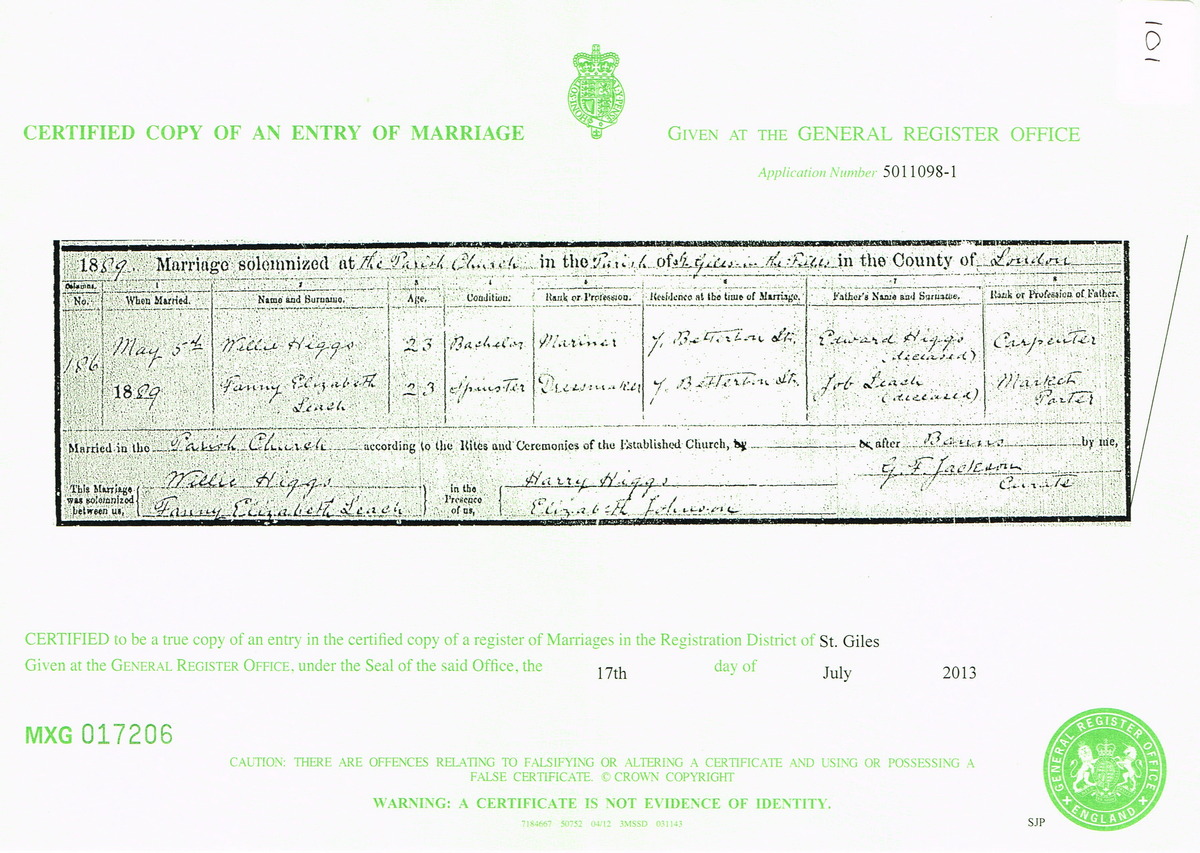 101
CERTIFIED COPY OF AN ENTRY OF MARRIAGE
GIVEN AT THE GENERAL REGISTER OFFICE
Application Number 5011098-1
1889. Marriage solemnized at the Parish Church in the Parish of St Giles in the Fields in the County of London
Columns. 1. 2 3 4 5 6 7 8
No. When Married. Name and Surname. Age. Condition. Rank or Profession. Residence at the time of Marriage. Father's Name and Surname. Rank or Profession of Father.
186 May 5th 1889 Willie Higgs 23 Bachelor Mariner 7, Betterton St. Edward Higgs (deceased) Carpenter
Fanny Elizabeth Leach 23 Spinster Dressmaker 7, Betterton St. Job Leach (deceased) Market Porter
Married in the Parish Church according to the Rites and Ceremonies of the Established Church, by or after Banns by me,
G. F. Jackson
Curate
This Marriage was solemnized between us, Willie Higgs Fanny Elizabeth Leach
in the Presence of us, Harry Higgs Elizabeth Johnson
CERTIFIED to be a true copy of an entry in the certified copy of a register of Marriages in the Registration District of St. Giles
Given at the GENERAL REGISTER OFFICE, under the Seal of the said Office, the 17th day of July 2013
MXG 017206
CAUTION: THERE ARE OFFENCES RELATING TO FALSIFYING OR ALTERING A CERTIFICATE AND USING OR POSSESSING A
FALSE CERTIFICATE. © CROWN COPYRIGHT
WARNING: A CERTIFICATE IS NOT EVIDENCE OF IDENTITY.
7184667 50752 04/12 3MSSD 031143
SJP
GENERAL REGISTER OFFICE
ENGLAND